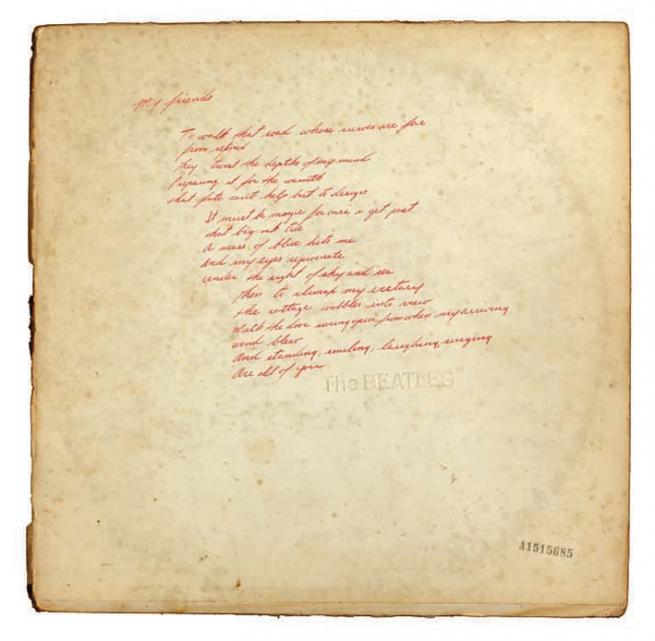 My friends
To walk that road whose curves are far
from refined
They twist the depths of my mind
Preparing it for the warmth
that fate can't help but to design
It must be magic for once I get past
that big oak tree
A mass of blue hits me
And my eyes rejuvenate
under the sight of sky and sea
then to climax my ecstacy
the cottage wobbles into view
Watch the door swing open from when my arriving
wind blew
And standing, smiling, laughing, singing
Are all of you
The BEATLES
A1515685